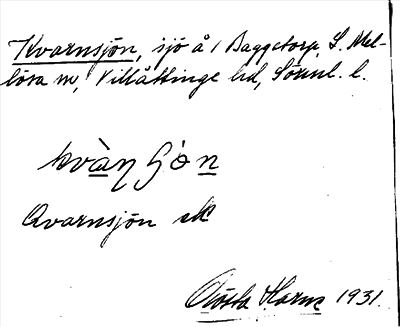 Kvarnsjön, sjö å 1 Baggetorp, L. Mel-
lösa sn, Villåttinge hd, Sörml. l.
kvàɳ ʃö̀n
Qvarnsjön
Gösta Harne 1931.